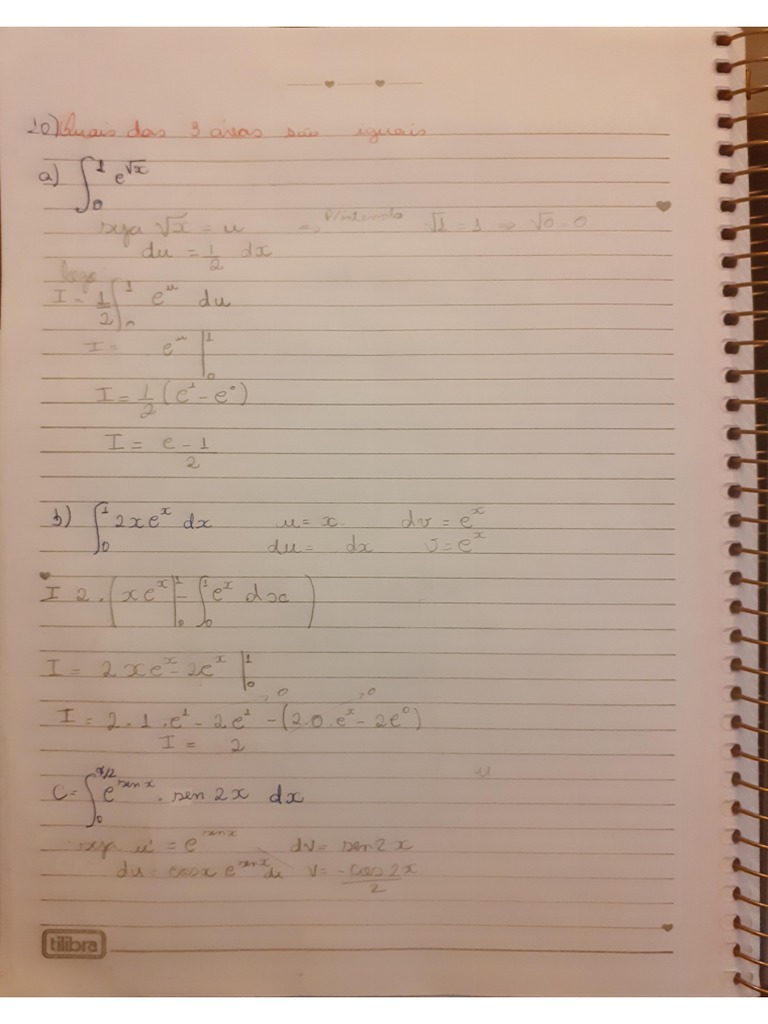 20) Quais das 3 áreas são iguais
a) ∫₀¹ e^√x
seja √x = u => p/intervalo √1 = 1 => √0 = 0
du = 1/2 dx
logo
I = 1/2 ∫₀¹ e^u du
I = e^u |₀¹
I = 1/2 (e¹ - e⁰)
I = e - 1 / 2
b) ∫₀¹ 2xe^x dx u = x dv = e^x
du = dx v = e^x
I 2 . (xe^x |₀¹ - ∫₀¹ e^x dx)
I = 2xe^x - 2e^x |₀¹
I = 2.1.e¹ - 2e¹ - (2.0.e^x - 2e⁰)
I = 2
u
C = ∫₀^π/2 e^sen x . sen 2x dx
seja u = e^sen x dv = sen 2x
du = cos x e^sen x dx v = -cos 2x / 2
tilibra